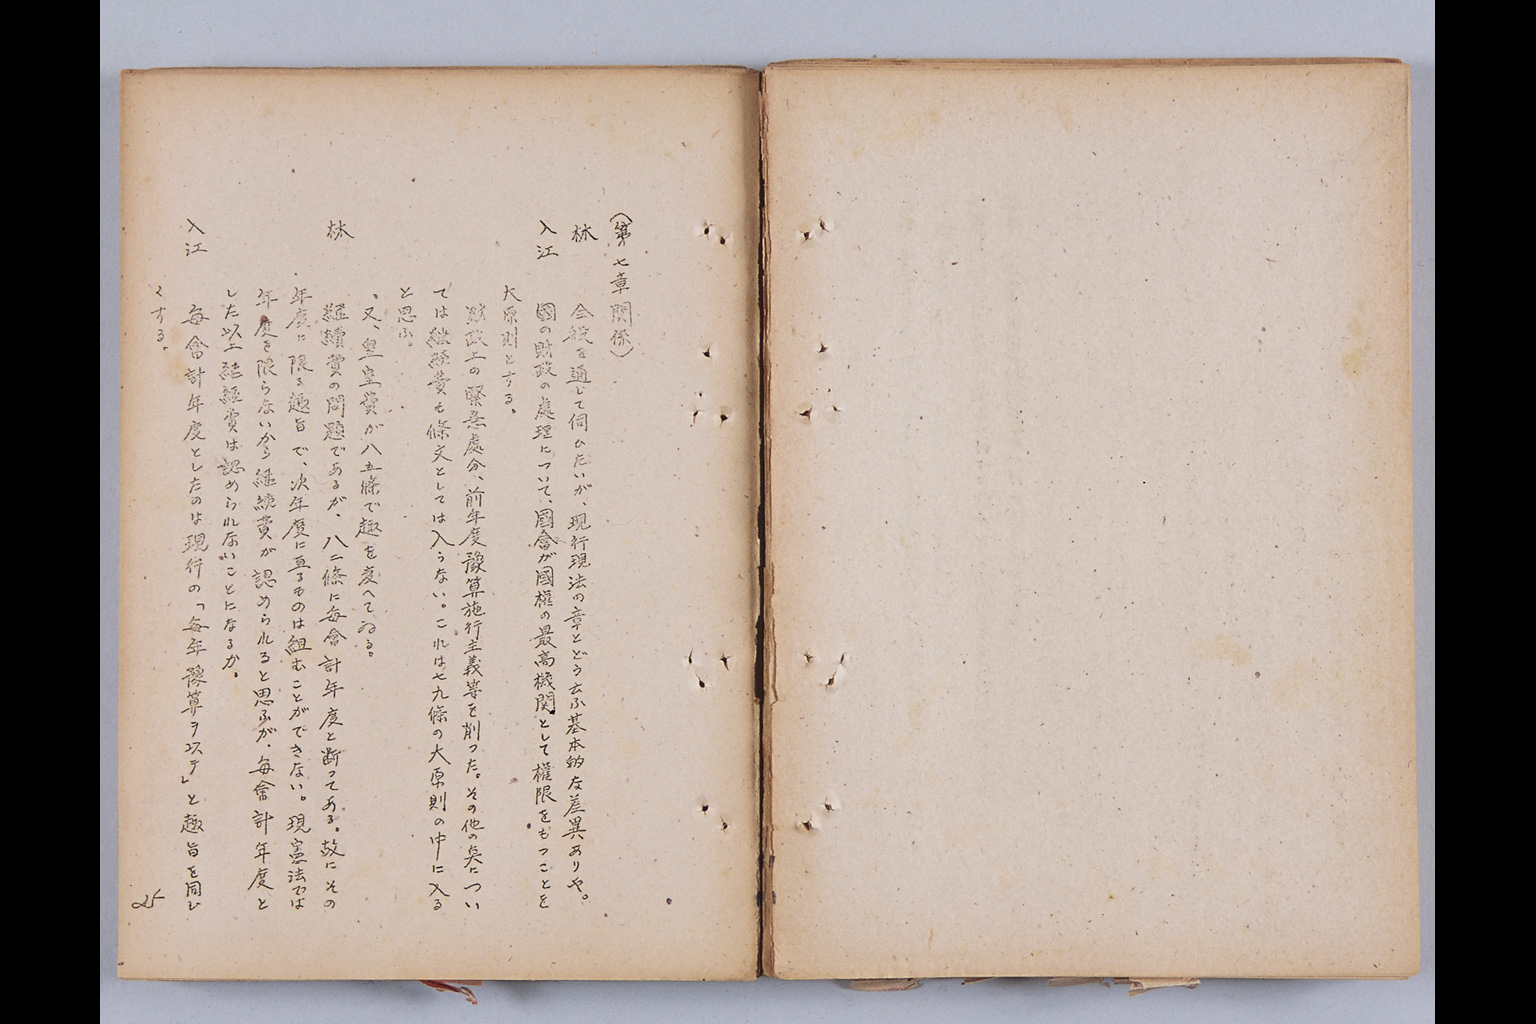 （第七章関係）
林　全般を通じて伺ひたいが、現行現法の章とどう云ふ基本的な差異ありや。
入江　國の財政の處理について、國會が國権の最高機関として權限をもつことを
大原則とする。
財政上の緊急處分、前年度豫算施行主義等を削つた。その他の点につい
ては継続費も條文としては入らない。これは七九條の大原則の中に入る
と思ふ。
又、皇室費が八五條で趣を変へてゐる。
林　継續費の問題であるが、八二條に毎會計年度と断つてある。故にその
年度に限る趣旨で、次年度に亘るものは組むことができない。現憲法では
年度を限らないから継続費が認められると思ふが、毎會計年度と
した以上継続費は認められないことになるか。
入江　毎會計年度としたのは現行の「毎年豫算ヲ以テ」と趣旨を同じ
くする。
25